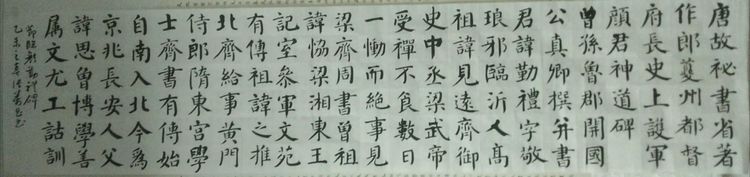 唐故秘書省著
作郎夔州都督
府長史上護軍
顏君神道碑
曾孫魯郡開國
公真卿撰并書
君諱勤禮字敬
琅邪臨沂人高
祖諱見遠齊御
史中丞梁武帝
受禪不食數日
一慟而絕事見
梁齊周書曾祖
諱協梁湘東王
記室參軍文苑
有傳祖諱之推
北齊給事黃門
侍郎隋東宮學
士齊書有傳始
自南入北今為
京兆長安人父
諱思魯博學善
屬文尤工詁訓